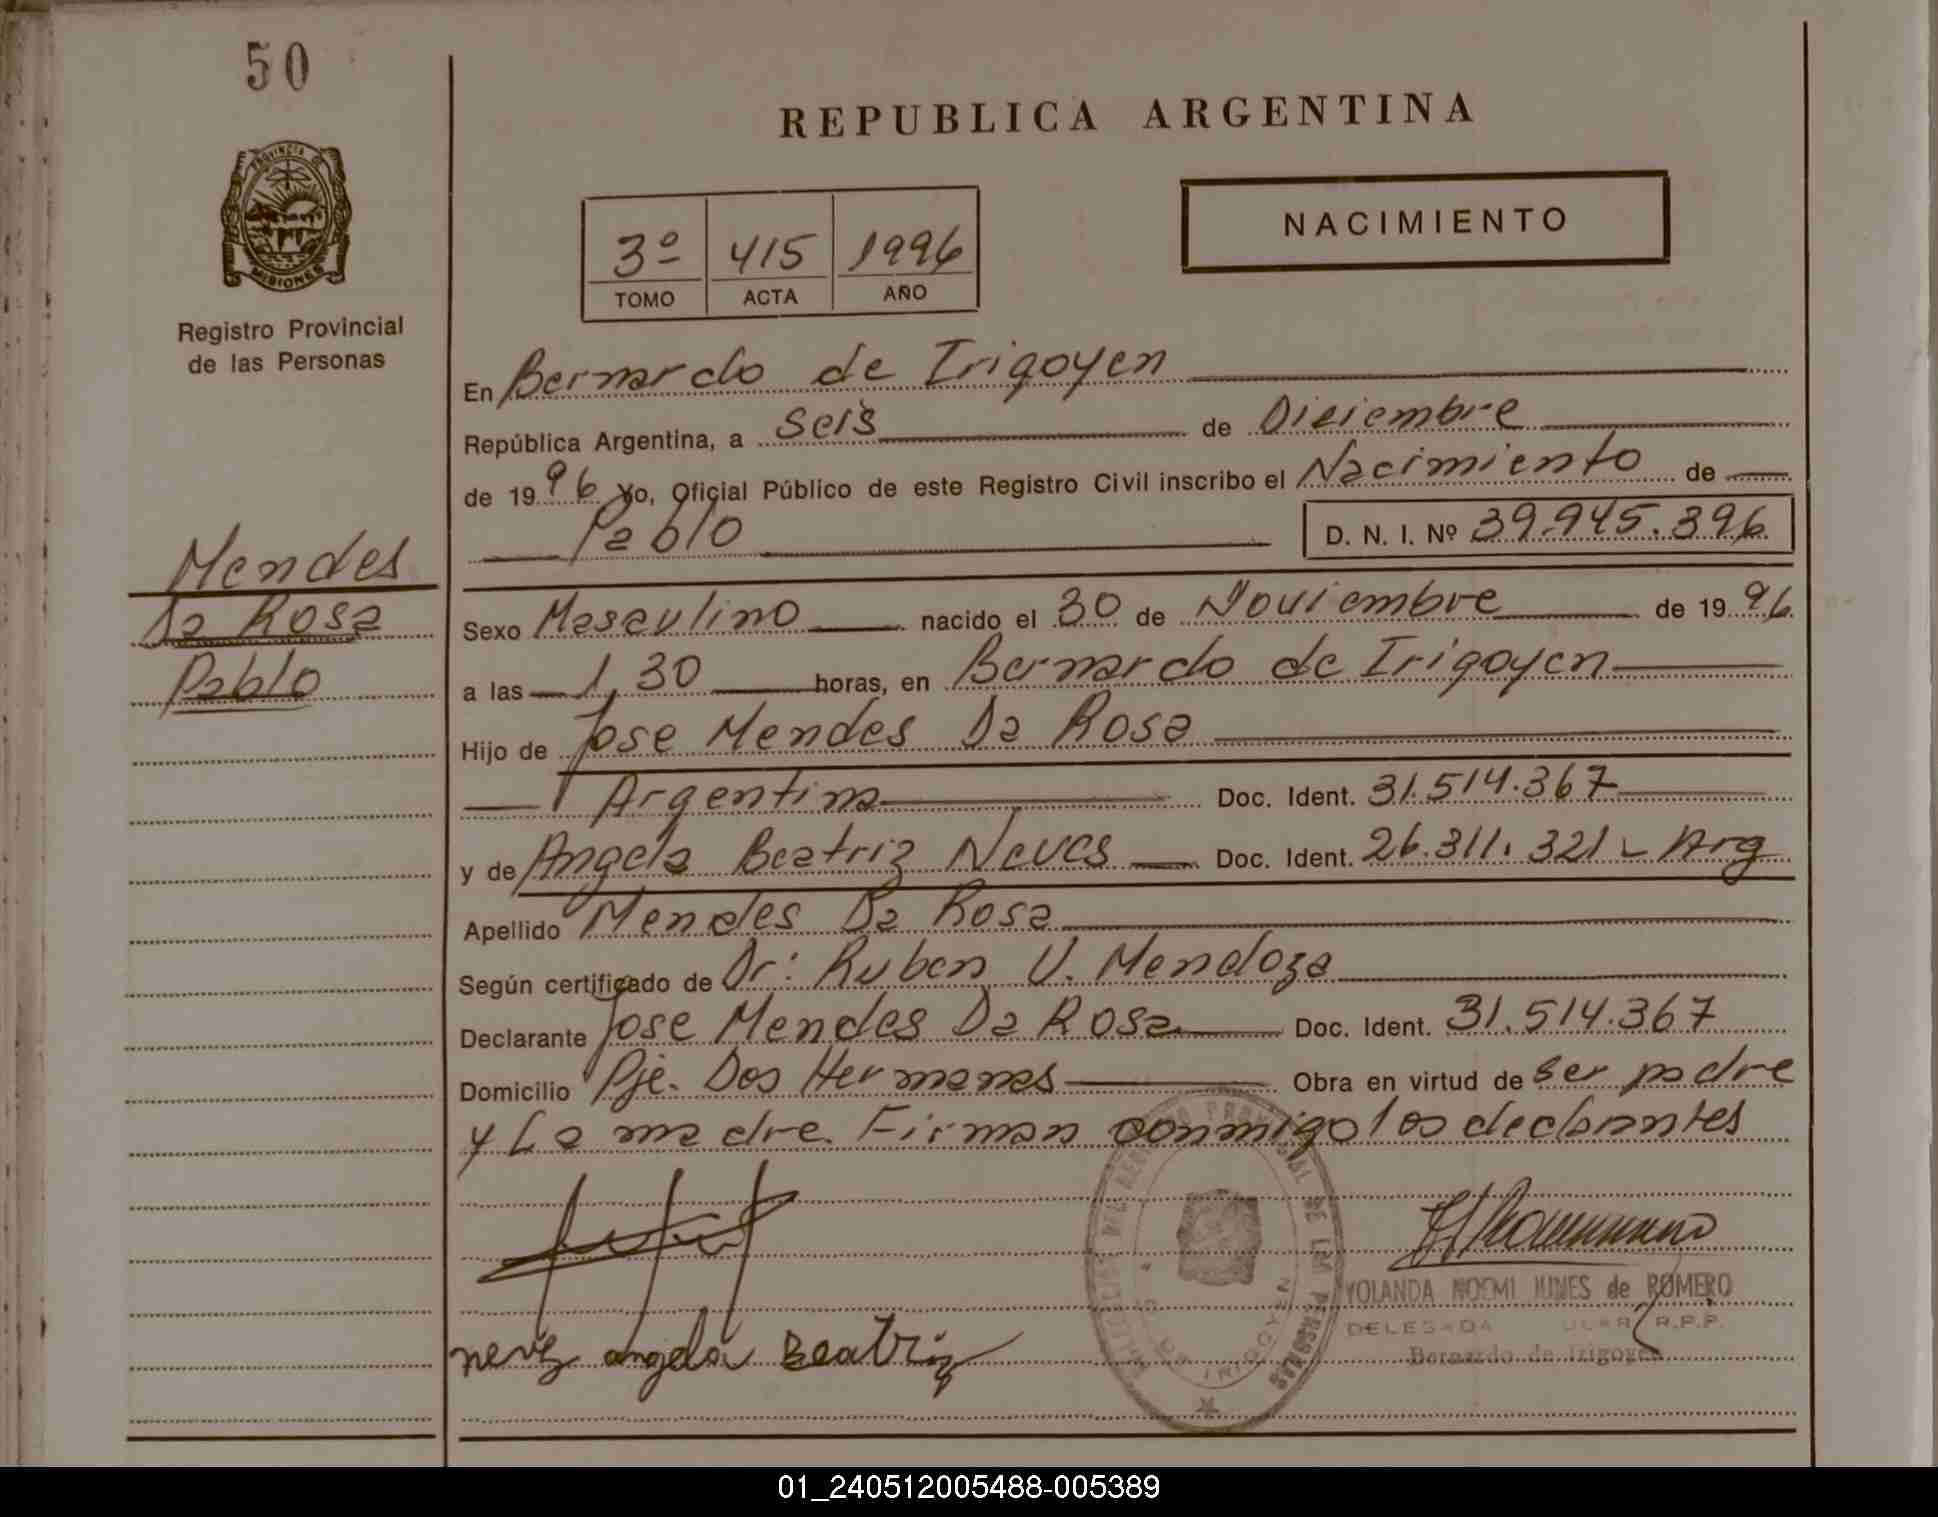 50
PROVINCIA DE
MISIONES
Registro Provincial
de las Personas
Mendes
Da Rosa
Pablo
REPUBLICA ARGENTINA
NACIMIENTO
3º 415 1996
TOMO ACTA AÑO
En Bernardo de Irigoyen
República Argentina, a seis de Diciembre
de 1996 Yo, Oficial Público de este Registro Civil inscribo el Nacimiento de
Pablo D. N. I. Nº 39.945.396
Sexo Masculino nacido el 30 de Noviembre de 1996
a las 1,30 horas, en Bernardo de Irigoyen
Hijo de Jose Mendes Da Rosa
Argentina Doc. Ident. 31.514.367
y de Angela Beatriz Neves Doc. Ident. 26.311.321 - Arg
Apellido Mendes Da Rosa
Según certificado de Dr: Ruben V. Mendoza
Declarante Jose Mendes Da Rosa Doc. Ident. 31.514.367
Domicilio Pje. Dos Hermanas Obra en virtud de ser padre
y La madre. Firman conmigo los declarantes
REGISTRO PROVINCIAL DE LAS PERSONAS
DE IRIGOYEN
YOLANDA NOEMI NUNES de ROMERO
DELEGADA R.P.P.
Bernardo de Irigoyen
Angela Beatriz
01_240512005488-005389